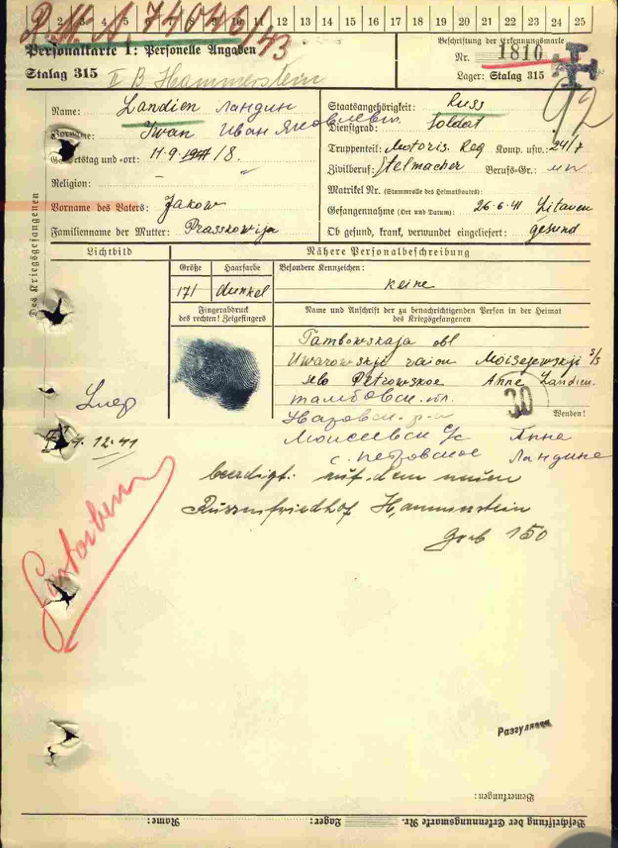 2 3 4 5 6 7 8 9 10 11 12 13 14 15 16 17 18 19 20 21 22 23 24 25
Personalkarte I: Personelle Angaben
Stalag 315 II B Hammerstein
Beschriftung der Erkennungsmarke
Nr. 1810
Lager: Stalag 315
92
Des Kriegsgefangenen
Name: Landien Ландин
Vorname: Iwan Иван Яковлевич
Geburtstag und -ort: 11.9.18
Religion:
Vorname des Vaters: Jakow
Familienname der Mutter: Prasskowija
Staatsangehörigkeit: Russ
Dienstgrad: Soldat
Truppenteil: Motoris. Reg Komp. usw.: 24/7
Zivilberuf: Stelmacher Berufs-Gr.:
Matrikel Nr. (Stammrolle des Heimatstaates):
Gefangennahme (Ort und Datum): 26.6.41 Litauen
Ob gesund, krank, verwundet eingeliefert: gesund
Lichtbild
Nähere Personalbeschreibung
Größe Haarfarbe Besondere Kennzeichen:
171 dunkel keine
Fingerabdruck
des rechten! Zeigefingers
Name und Anschrift der zu benachrichtigenden Person in der Heimat
des Kriegsgefangenen
Tambowskaja obl
Uwarowskij raion Moisejewskij s/s
selo Petrowskoe Anne Landien.
Тамбовск. обл.
30
Wenden!
Моисеевск с/с Анна
с. Петровское Ландине
Умер
4.12.41
Gestorben
beerdigt auf dem neuen
Russenfriedhof Hammerstein
Grab 150
Разгуляева
Bemerkungen:
Beschriftung der Erkennungsmarke Nr. Lager: Name: